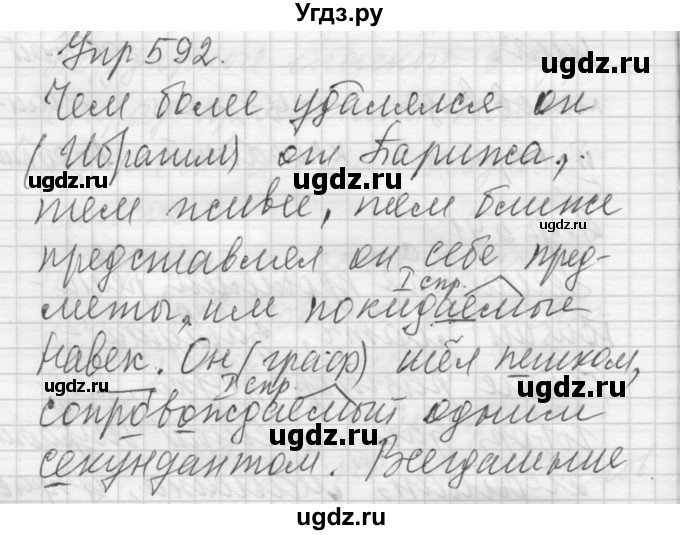 Угдз.ру
Упр 592.
ugdz.ru
Чем более удалялся он
(Ибрагим) от Парижа,
ugdz.ru ugdz.ru ugdz.ru
тем живее, тем ближе
ugdz.ru
представлял он себе пред-
I спр.
меты, им покидаемые
ugdz.ru
навек. Он (граф) шёл пешком,
ugdz.ru I спр. ugdz.ru
сопровождаемый одним
ugdz.ru
секундантом. Всегдашние
ugdz.ru ugdz.ru
ugdz.ru